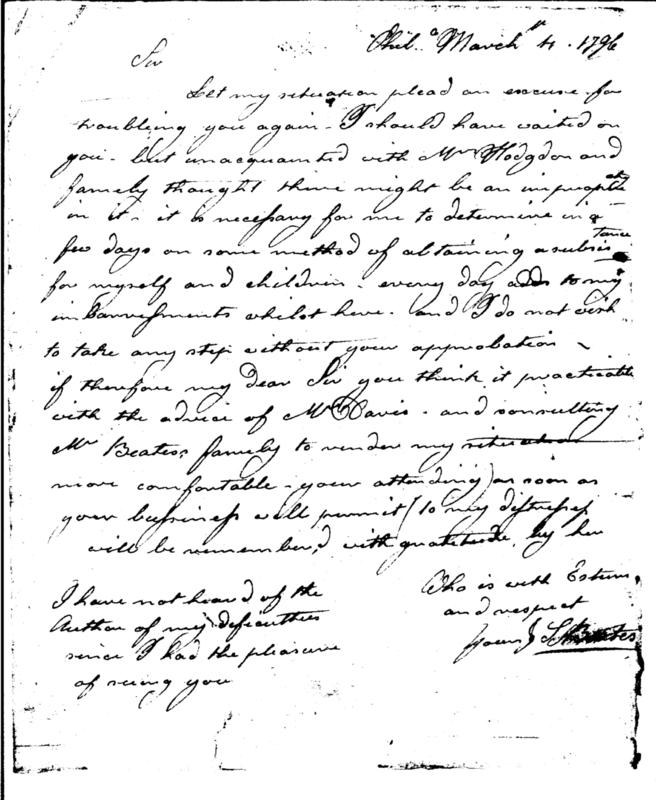 Phil.a March 4. 1796
Sir
Let my situation plead an excuse for
troubling you again - I should have waited on
you - but unacquainted with Mr Hodgdon and
famely thought there might be an impropriety
in it - it is necessary for me to determine in a
few days on some method of abtaining a subsistance
for myself and children - every day adds to my
imbarressments whilst here - and I do not wish
to take any step without your approbation -
if therefore my dear Sir you think it practicable
with the advice of Mr Davis - and consulting
Mr Beatess famely to render my situation
more comfortable - your attending (as soon as
your bussiness will permit) to my distresses
will be remember,d with gratitude, by her
Who is with Esteem,
and respect
Yours
I have not heard of the
Author of my deficulties
since I had the pleasure
of seeing you